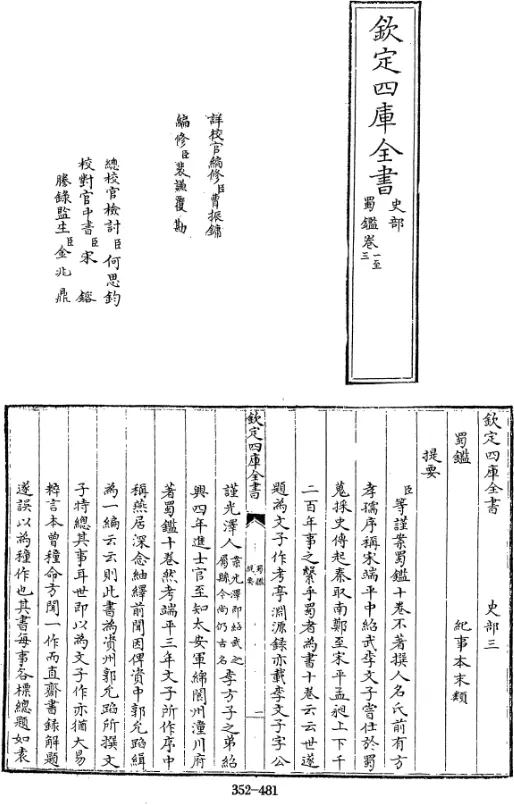 欽定四庫全書
史部
蜀鑑卷一至三
詳校官編修臣曹振鏞
編修臣裴謙覆勘
總校官檢討臣何思鈞
校對官中書臣宋鎔
謄錄監生臣金兆鼎
欽定四庫全書 史部三
蜀鑑 紀事本末類
提要
臣等謹案蜀鑑十卷不著撰人名氏前有方
孝孺序稱宋端平中紹武李文子嘗仕於蜀
蒐採史傳起秦取南鄭至宋平孟昶上下千
二百年事之繫乎蜀者為書十卷云云世遂
題為文子作考亭淵源錄亦載李文子字公
欽定四庫全書 蜀鑑提要 一
謹光澤人案光澤即紹武之屬縣今尚仍古名李方子之弟紹
興四年進士官至知太安軍綿閬州潼川府
著蜀鑑十卷然考端平三年文子所作序中
稱燕居深念紬繹前聞因俾資中郭允蹈緝
為一編云云則此書為資州郭允蹈所撰文
子特總其事耳世即以為文子作亦猶大易
粹言本曾穜命方聞一作而直齋書錄解題
遂誤以為穜作也其書每事各標總題如袁
352-481